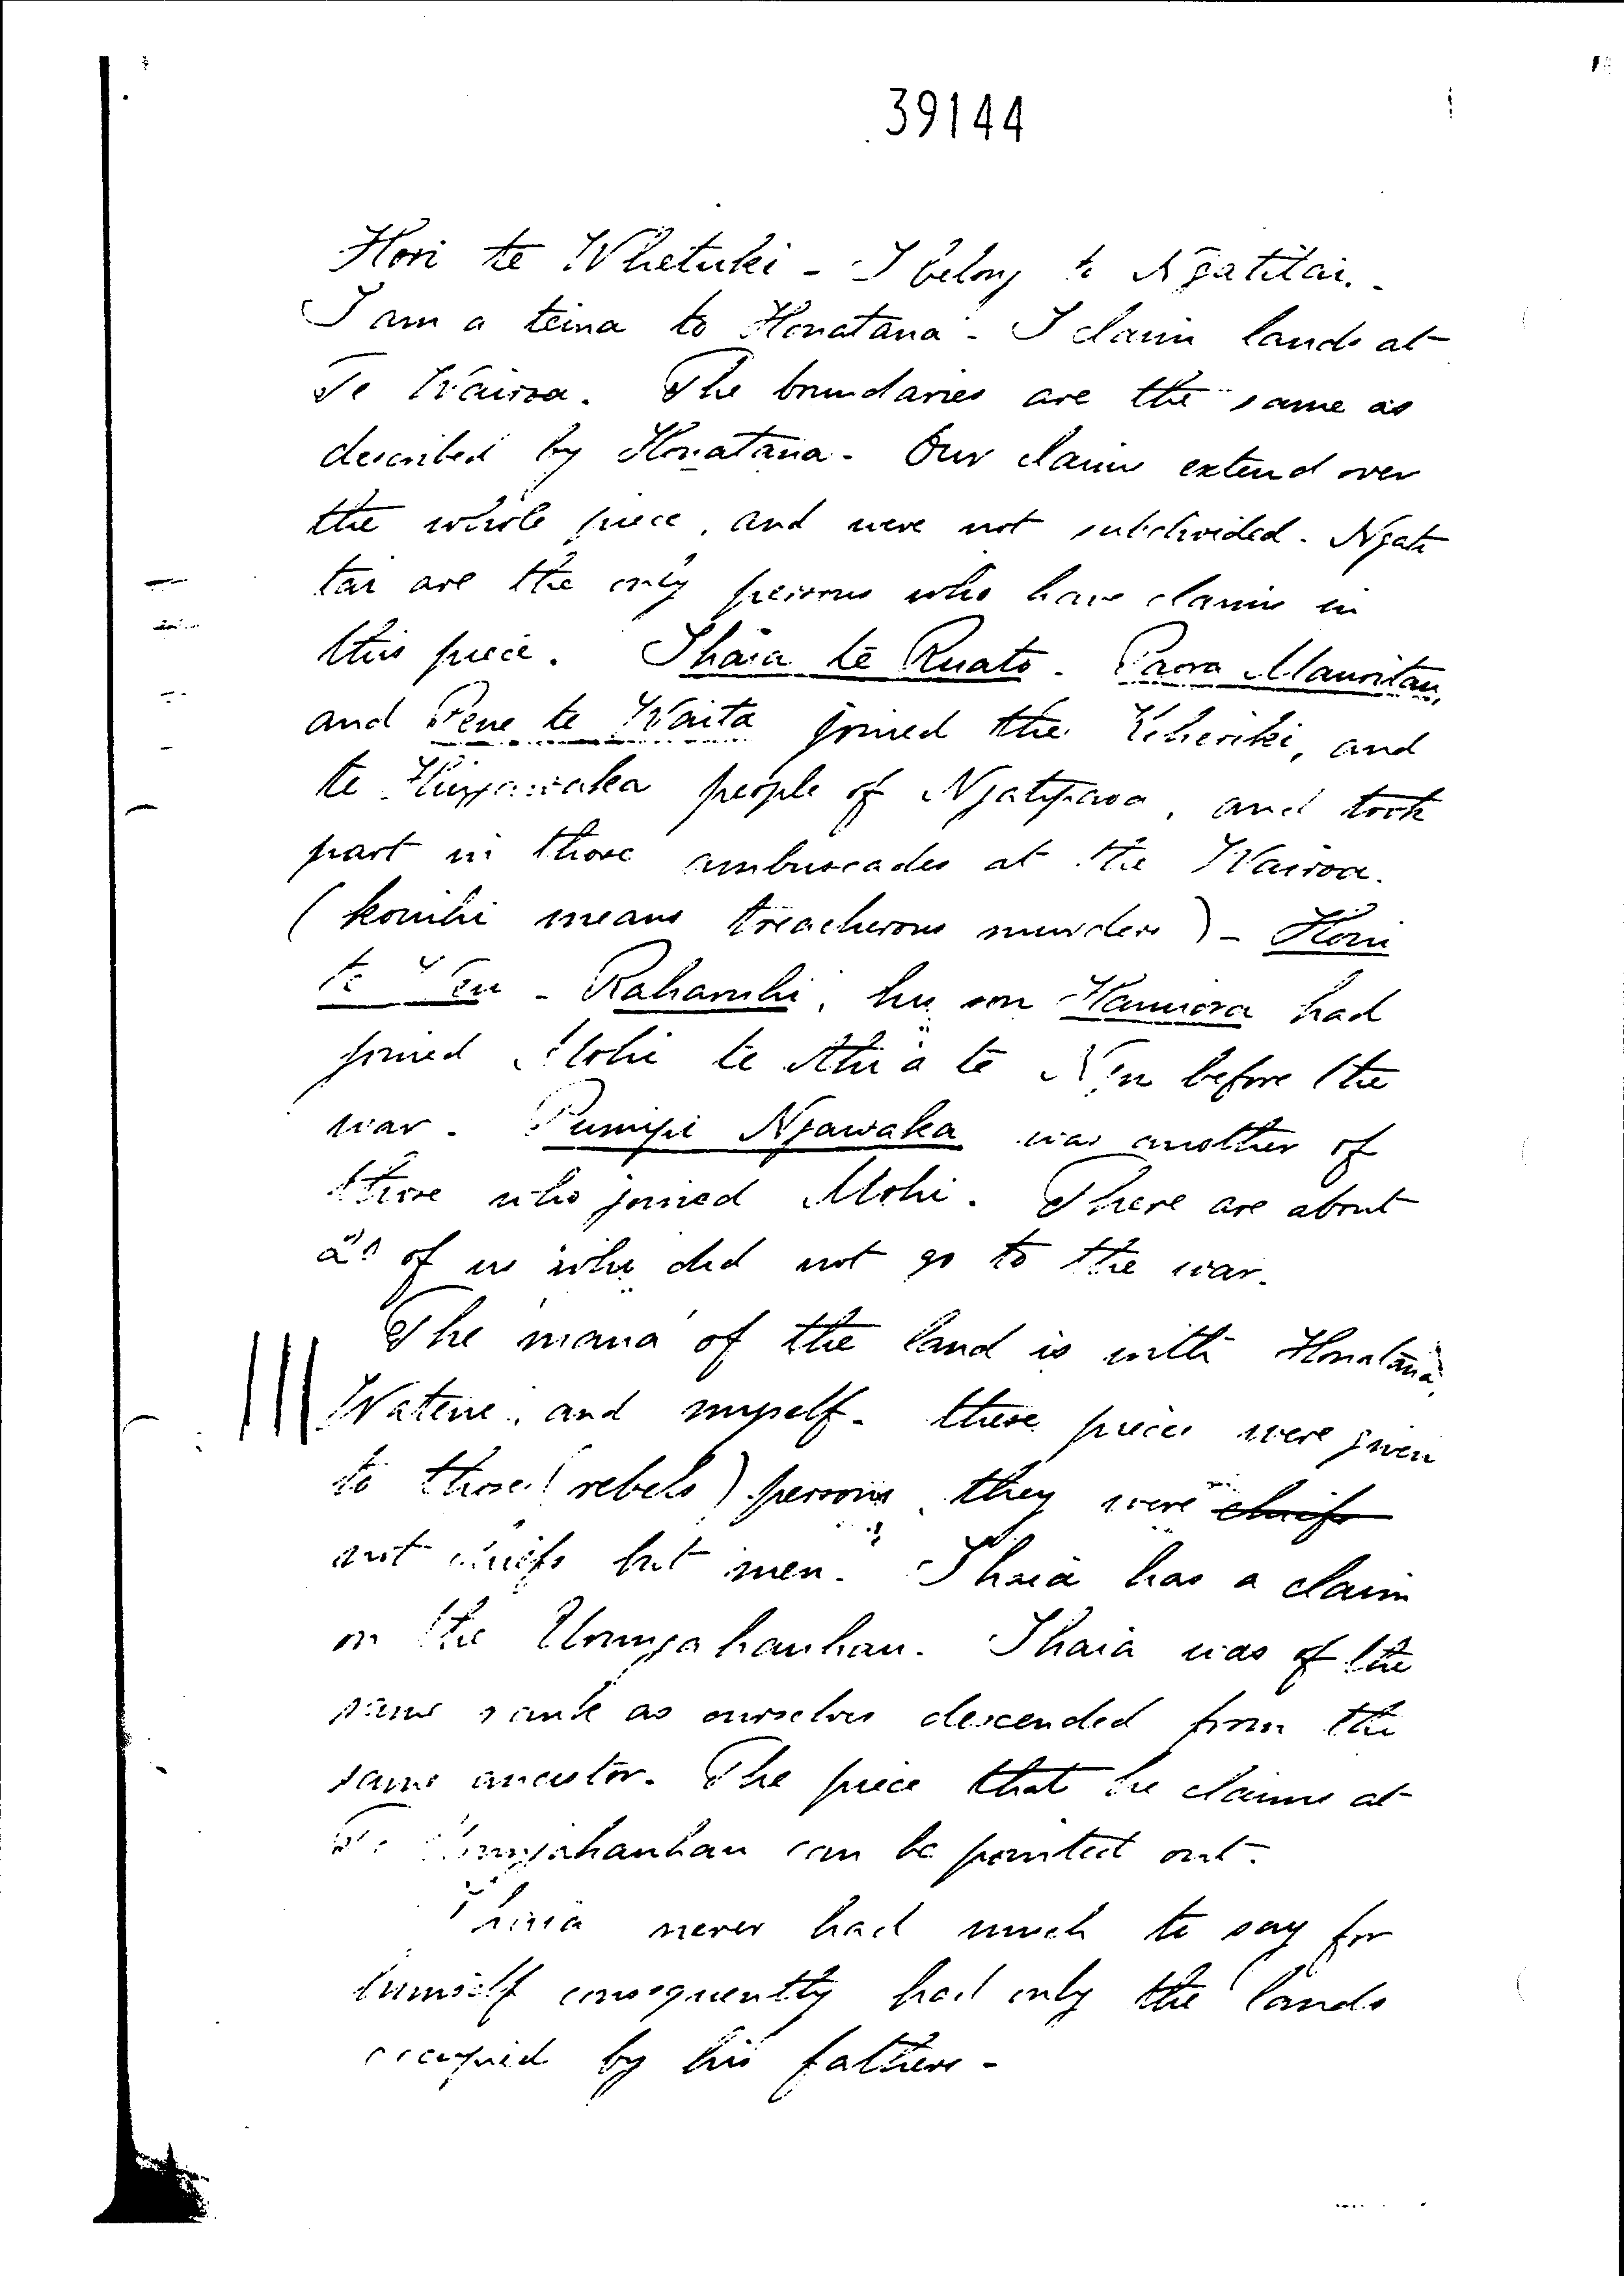 39144
Hori te Whetuki - I belong to Ngatitai. -
I am a teina to Honatana - I claim lands at
Te Wairoa. The boundaries are the same as
described by Honatana - Our claims extend over
the whole piece, and were not subdivided. Ngati
tai are the only persons who have claims in
this piece. Ihaia te Ruato - Paora Mauritau,
and Pene te Waita joined the Koheriki, and
te people of Ngatipaoa, and took
part in those ambuscades at the Wairoa.
(konihi means treacherous murders) - Hori
te - , his son Hamiora had
joined Mohi te Ahi a te Ngu before the
war - Pumipi Ngawaka was another of
those who joined Mohi. There are about
of us who did not go to the war.
The mana of the land is with Honatana,
Watene, and myself - these pieces were given
to those (rebels) persons, they were chiefs
not chiefs but men. Ihaia has a claim
on the Urungahauhau. Ihaia was of the
same rank as ourselves descended from the
same ancestor. The piece that he claims at
Te Urungahauhau can be pointed out.
Ihaia never had much to say for
himself consequently had only the lands
occupied by his fathers -